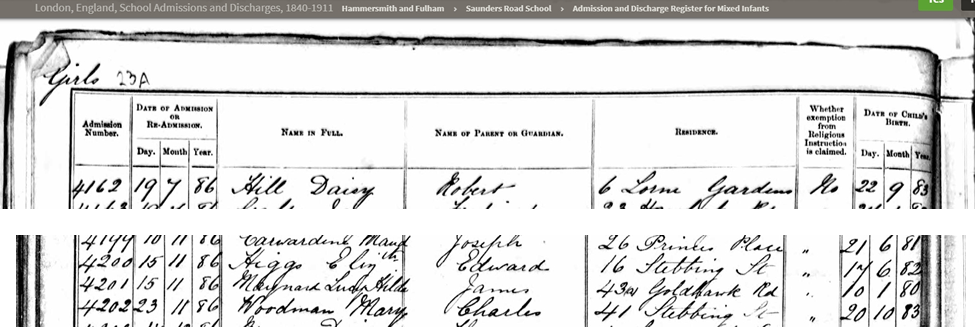 London, England, School Admissions and Discharges, 1840-1911 Hammersmith and Fulham › Saunders Road School › Admission and Discharge Register for Mixed Infants
Girls 23A
Admission Number. DATE OF ADMISSION OR RE-ADMISSION. Day. Month Year. NAME IN FULL. NAME OF PARENT OR GUARDIAN. RESIDENCE. Whether exemption from Religious Instruction is claimed. DATE OF CHILD'S BIRTH. Day. Month Year.
4162 19 7 86 Hill Daisy Robert 6 Lorne Gardens No 22 9 83
4199 10 11 86 Carwardine Maud Joseph 26 Princes Place " 21 6 81
4200 15 11 86 Higgs Elizth Edward 16 Stebbing St " 17 6 82
4201 15 11 86 Maynard Hilda James Goldhawk Rd " 10 1 80
4202 23 11 86 Woodman Mary Charles 41 Stebbing St " 20 10 83